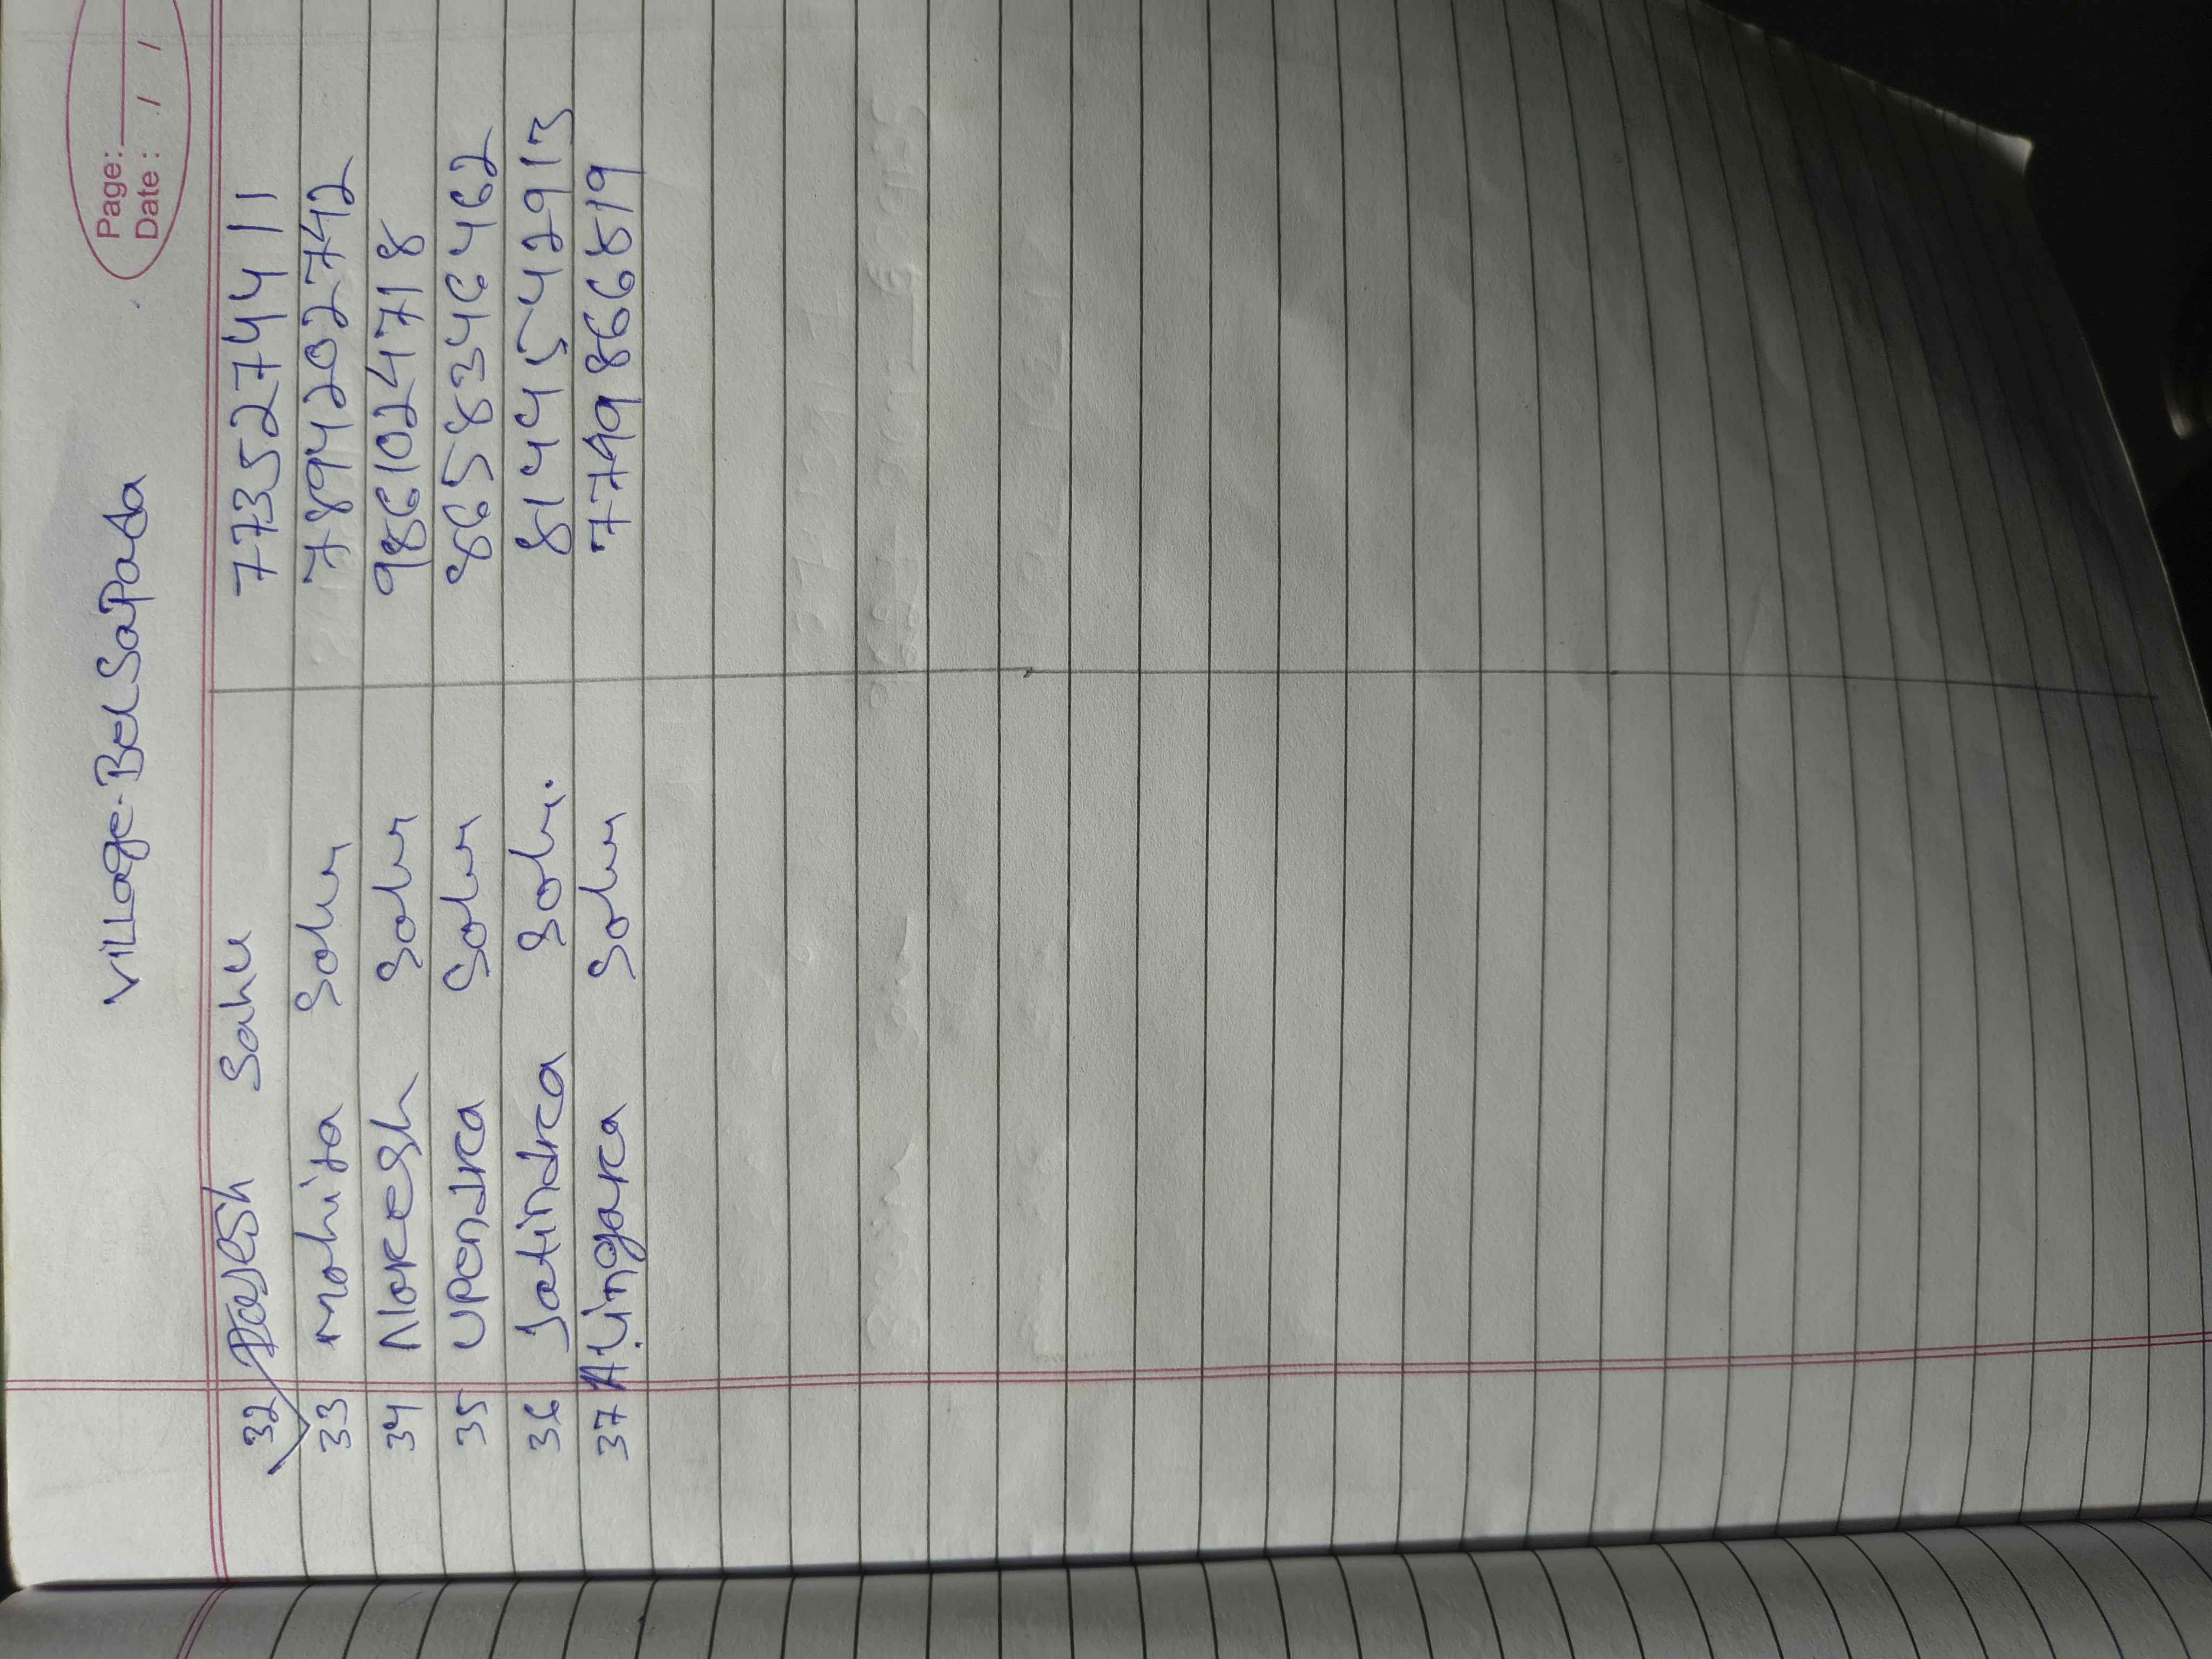 Page:
Date: / /
Village-Belsapada
32 Paresh Sahu 7735274411
33 Mohita Sahu 7894202742
34 Naresh Sahu 9861024718
35 Upendra Sahu 8658346462
36 Jatindra Sahu. 8144542913
37 Alingara Sahu 7749866519